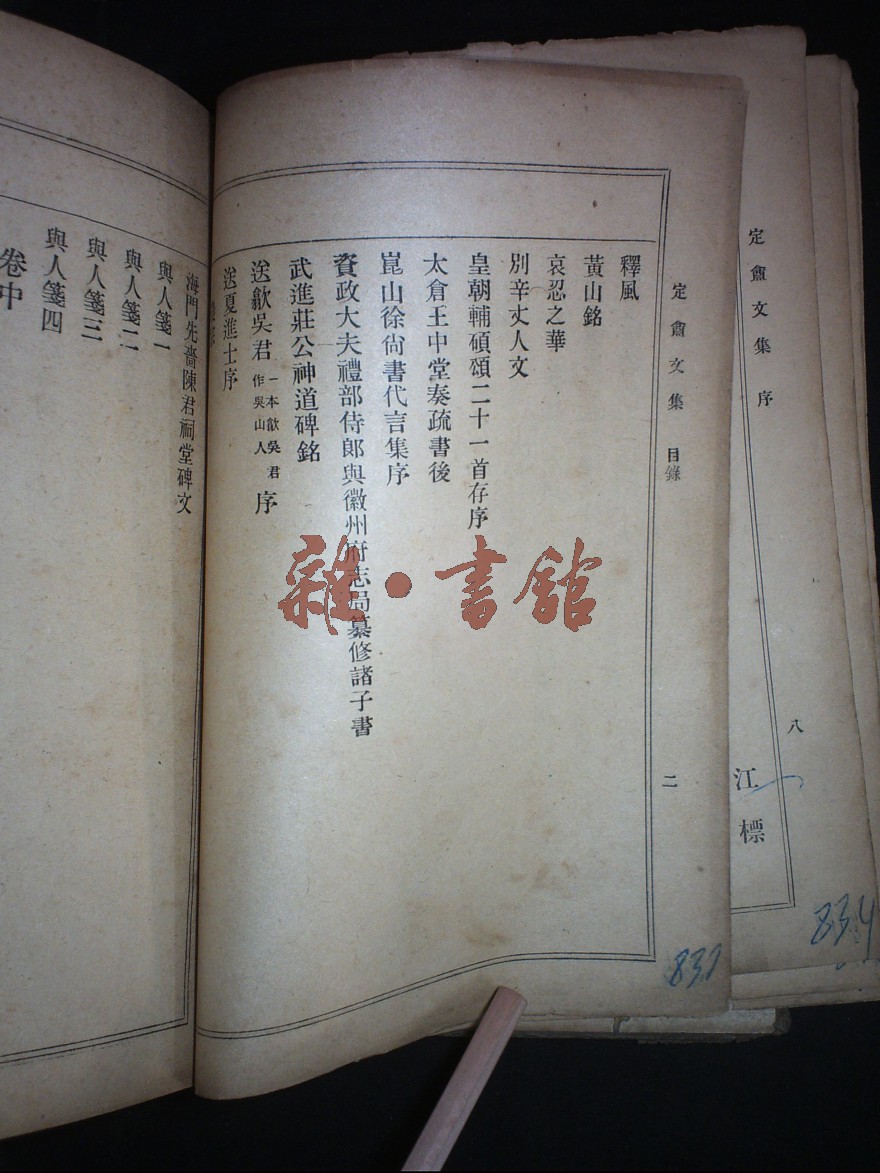 定盦文集 序
八
江標
834
定盦文集 目錄
二
釋風
黃山銘
哀忍之華
別辛丈人文
皇朝輔碩頌二十一首存序
太倉王中堂奏疏書後
崑山徐尙書代言集序
資政大夫禮部侍郎與徽州府志局纂修諸子書
武進莊公神道碑銘
送歙吳君 一本歙吳君作吳山人 序
送夏進士序
海門先嗇陳君祠堂碑文
與人箋一
與人箋二
與人箋三
與人箋四
卷中
雜·書館